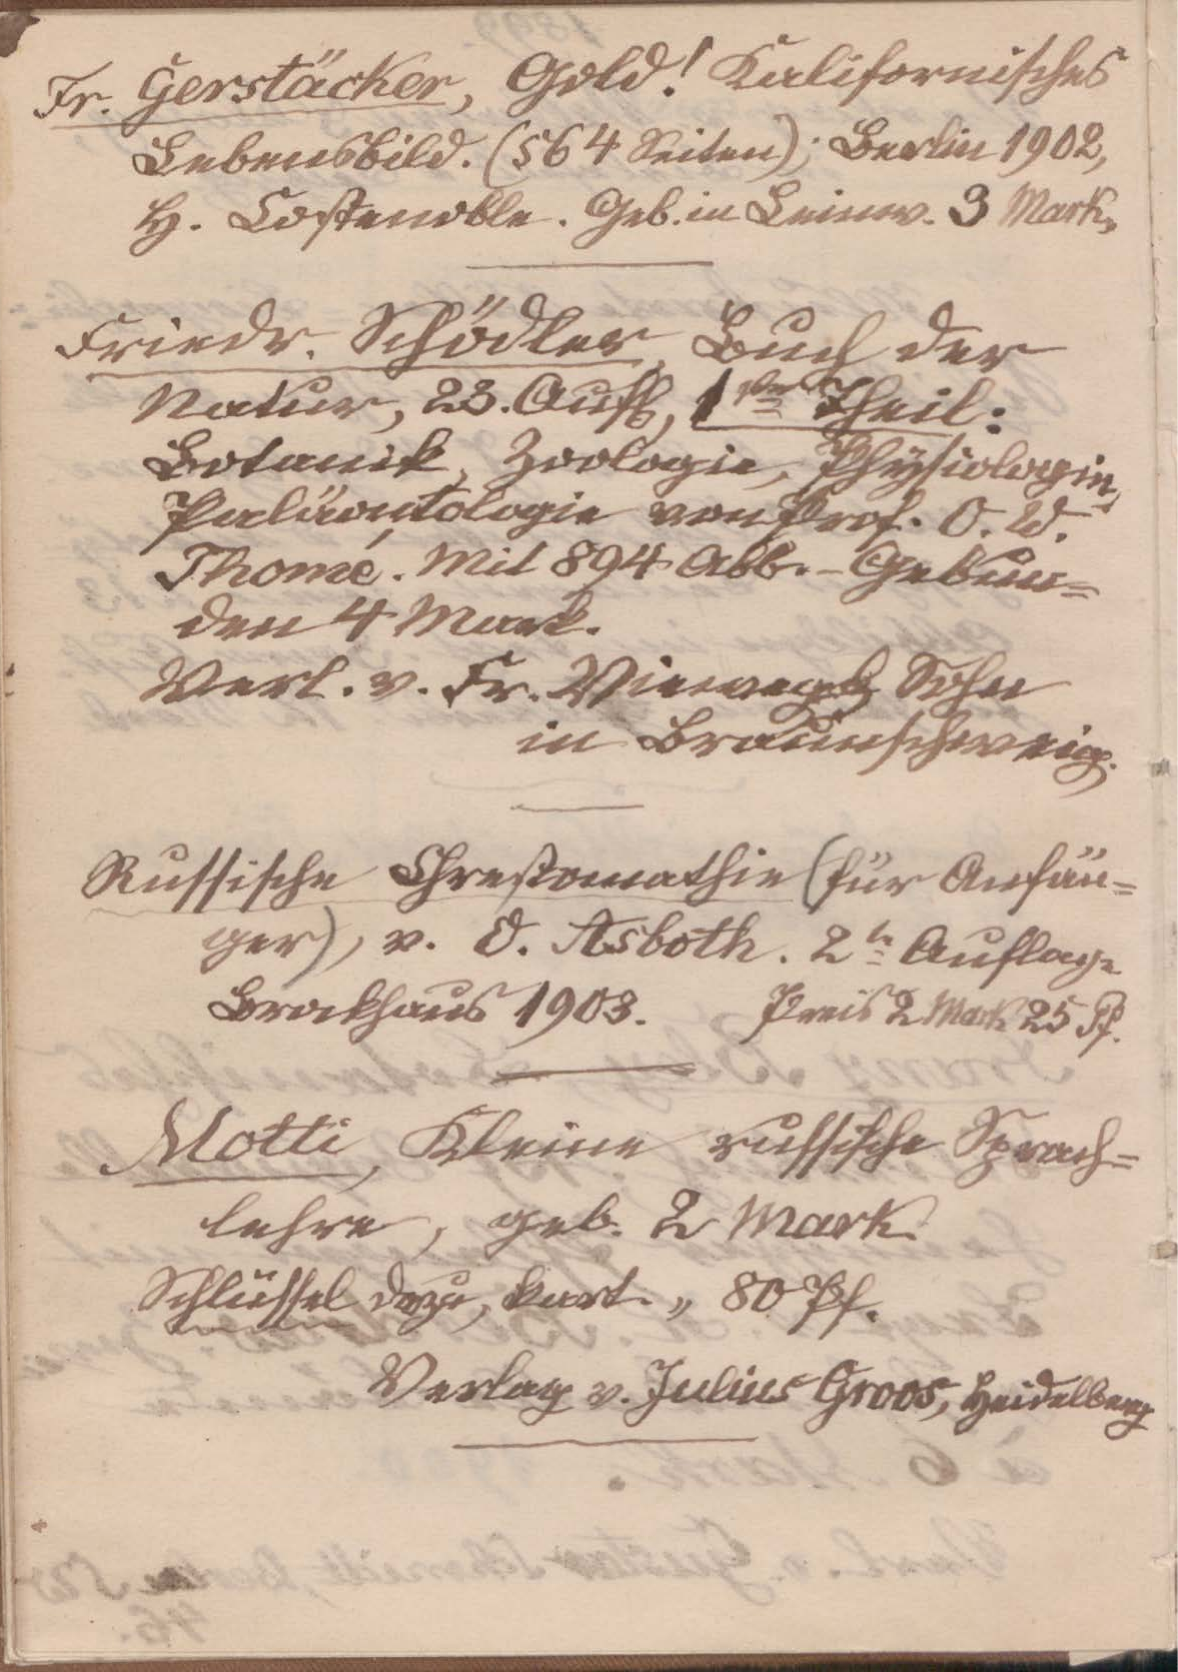 Fr. Gerstäcker, Gold! Kalifornisches
Lebensbild. (564 Seiten); Berlin 1902,
H. Costenoble. Geb. in Leinw. 3 Mark,
Friedr. Schödler, Buch der
Natur, 23. Aufl., 1ter Theil:
Botanik, Zoologie, Physiologie,
Paläontologie von Prof. O. W.
Thomé. Mit 894 Abb. - Gebun=
den 4 Mark.
Verl. v. Fr. Vieweg & Sohn
in Braunschweig.
Russische Chrestomathie (für Anfän=
ger), v. O. Asboth. 2te Auflage
Brockhaus 1903. Preis 2 Mark 25 Pf.
Motti, Kleine russische Sprach=
lehre, geb. 2 Mark.
Schlüssel dazu, kart. „ 80 Pf.
Verlag v. Julius Groos, Heidelberg